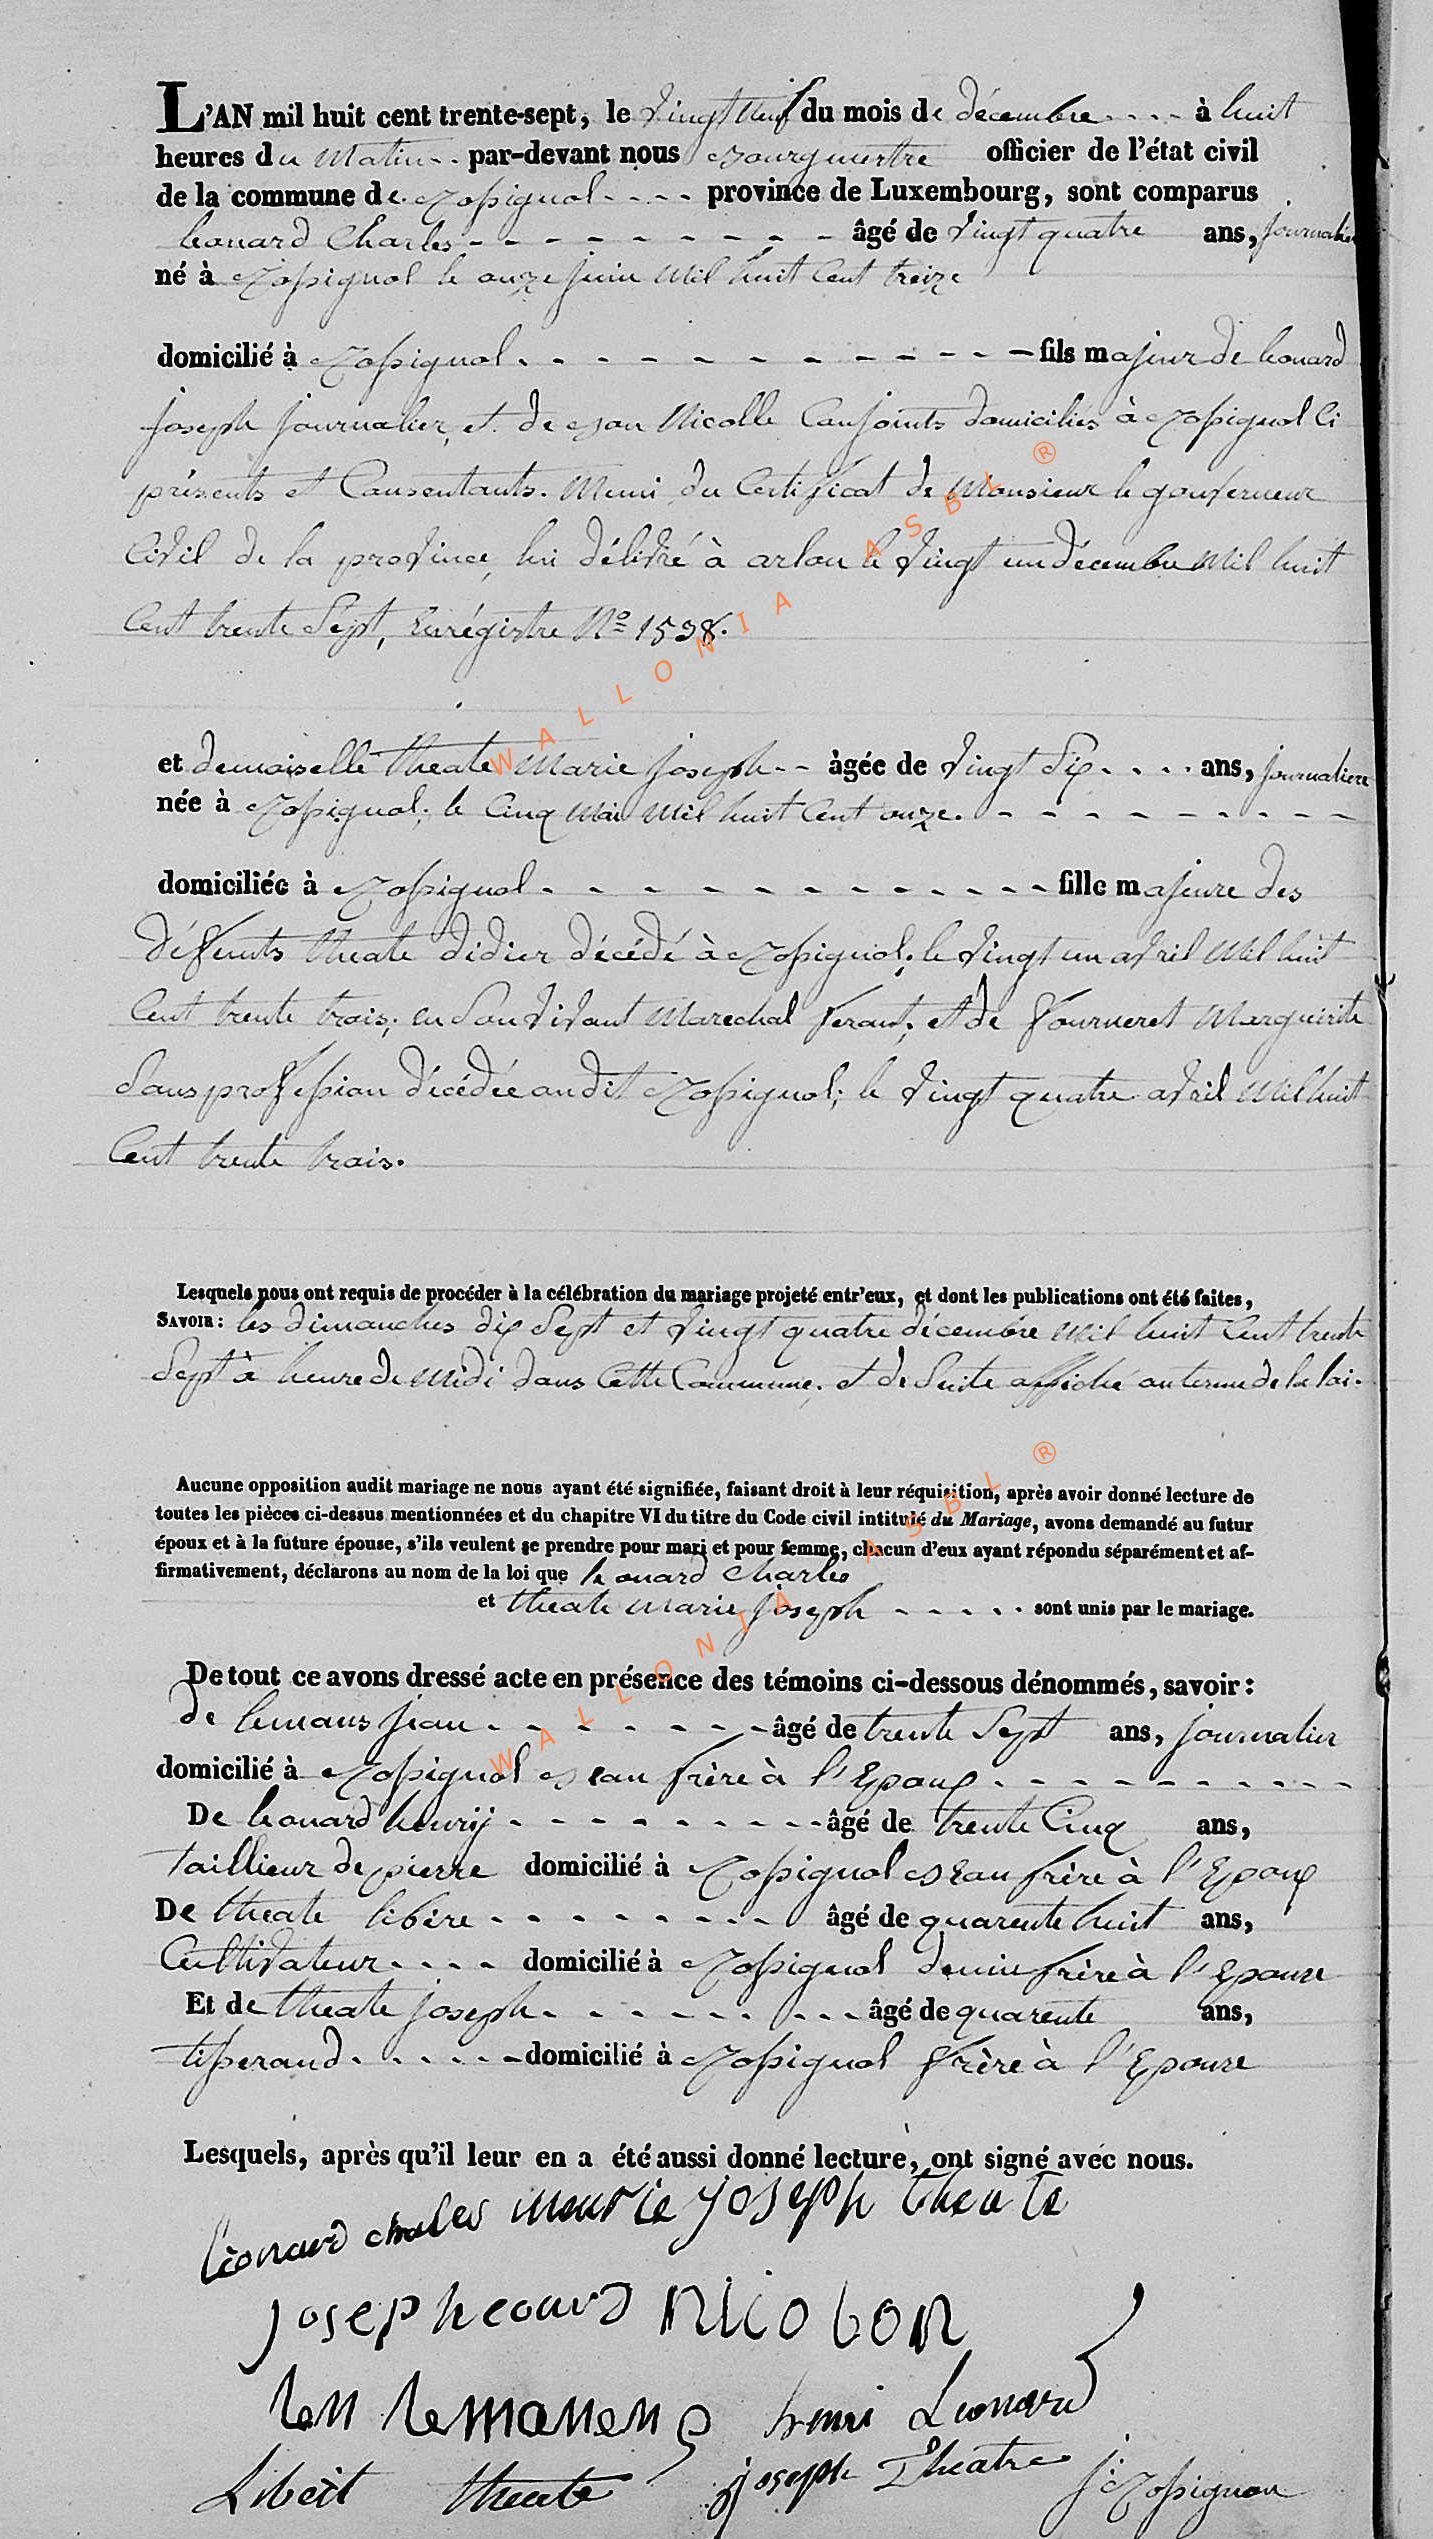 L'AN mil huit cent trente-sept, le vingt neuf du mois de décembre à huit
heures du Matin par-devant nous Bourgmestre officier de l'état civil
de la commune de Rossignol province de Luxembourg, sont comparus
Leonard Charles âgé de vingt quatre ans, journalier
né à Rossignol le onze juin Mil huit Cent treize
domicilié à Rossignol fils majeur de Leonard
joseph journalier, et de Bon Nicolle Conjoints domiciliés à Rossignol Ci
présents et Consentants. Muni du Certificat de Monsieur le gouverneur
Civil de la province, lui délivré à arlon le vingt un décembre Mil huit
Cent trente Sept, Enrégistre Nº 1598.
et demoiselle theate Marie joseph àgée de vingt Six ans, journaliere
née à Rossignol, le Cinq Mai Mil huit Cent onze.
domiciliée à Rossignol fille majeure des
défunts theate didier décédé à Rossignol, le vingt un avril Mil huit
Cent trente trois, en Son vivant Marechal ferant; et de fourneret Marguerite
Sans profession décédée audit Rossignol; le vingt quatre avril Mil huit
Cent trente trois.
Lesquels nous ont requis de procéder à la célébration du mariage projeté entr'eux, et dont les publications ont été faites,
SAVOIR : les dimanches dix Sept et vingt quatre décembre Mil huit Cent trente
Sept à heure de Midi dans Cette Commune, et de Suite affiché au terme de la loi.
Aucune opposition audit mariage ne nous ayant été signifiée, faisant droit à leur réquisition, après avoir donné lecture de
toutes les pièces ci-dessus mentionnées et du chapitre VI du titre du Code civil intitulé du Mariage, avons demandé au futur
époux et à la future épouse, s'ils veulent se prendre pour mari et pour femme, chacun d'eux ayant répondu séparément et af-
firmativement, déclarons au nom de la loi que Leonard Charles
et theate Marie joseph sont unis par le mariage.
De tout ce avons dressé acte en présence des témoins ci-dessous dénommés, savoir :
de Lemans jean âgé de trente Sept ans, journalier
domicilié à Rossignol Beau frère à l'Epoux
De Leonard henrij âgé de trente Cinq ans,
taillieur de pierre domicilié à Rossignol Beau frère à l'Epoux
De theate libère âgé de quarente huit ans,
Cultivateur domicilié à Rossignol demi frère à l'Epouse
Et de theate joseph âgé de quarente ans,
tisserand domicilié à Rossignol frère à l'Epouse
Lesquels, après qu'il leur en a été aussi donné lecture, ont signé avec nous.
léonard charles marie joseph theate
joseph leonard nico bon
lemanens henri Leonard
Libert theate joseph Théatre J: Rossignon
WALLONIA ASBL ®
WALLONIA ASBL ®